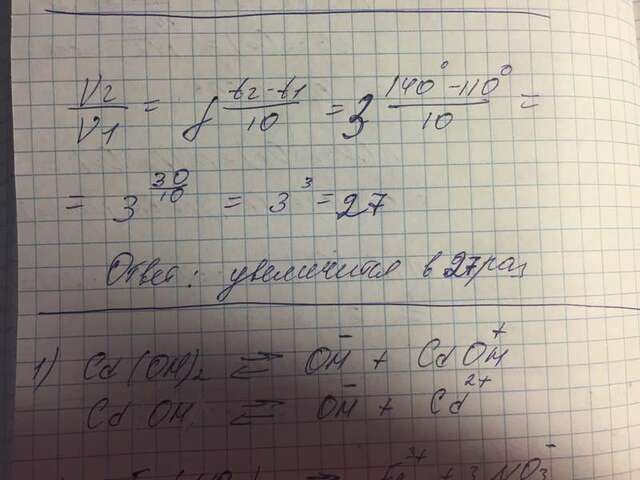 V2/V1 = γ^((t2-t1)/10) = 3^((140°-110°)/10) =
= 3^(30/10) = 3^3 = 27
Ответ: увеличится в 27 раз
1) Cd(OH)2 ⇄ OH^- + CdOH^+
CdOH ⇄ OH^- + Cd^2+
^3+ + 3NO3^-